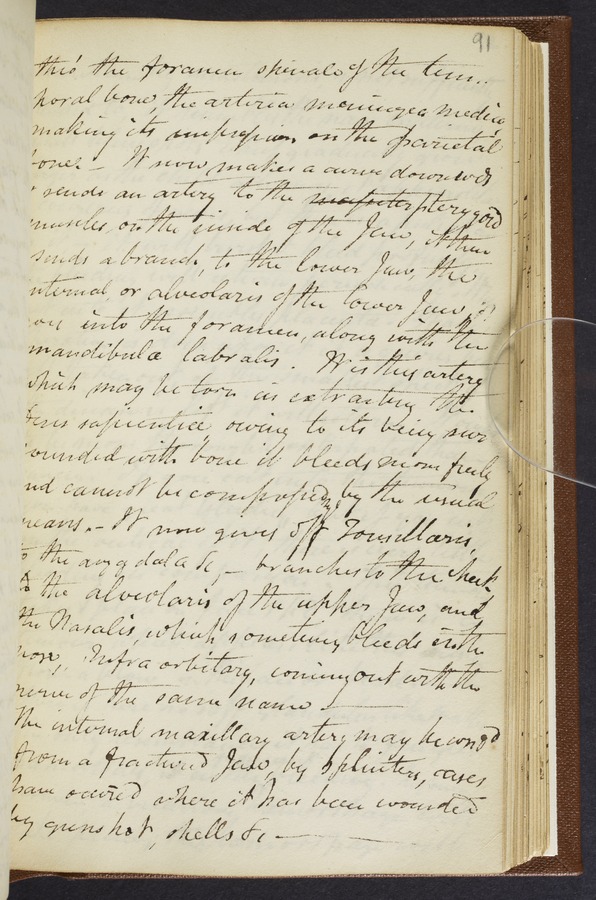 91
thro' the foramen spinale of the tem-
poral bone, the arteria meningea media
making its impression on the parietal
bones - It now makes a curve downwds
sends an artery to the pterygoid
muscles, on the inside of the Jaw, it then
sends a branch, to the lower Jaw, the
internal, or alveolaris of the lower Jaw, it
into the foramen, along with the
mandibula labralis. It is this artery
which may be torn in extracting the
dens sapientiæ owing to its being surr
ounded with bone it bleeds more freely
and cannot be compressed by the usual
means. - It now gives off Tonsillaris,
to the amygdala &c, - branches to the cheek
to the alveolaris of the upper Jaw, and
the Nasalis, which sometimes bleeds in the
nose, Infra orbitary, coming out with the
nerve of the same name
The internal maxillary artery may be wound
from a fractured Jaw, by splinters, cases
have occured where it has been wounded
by gunshot, shells &c -